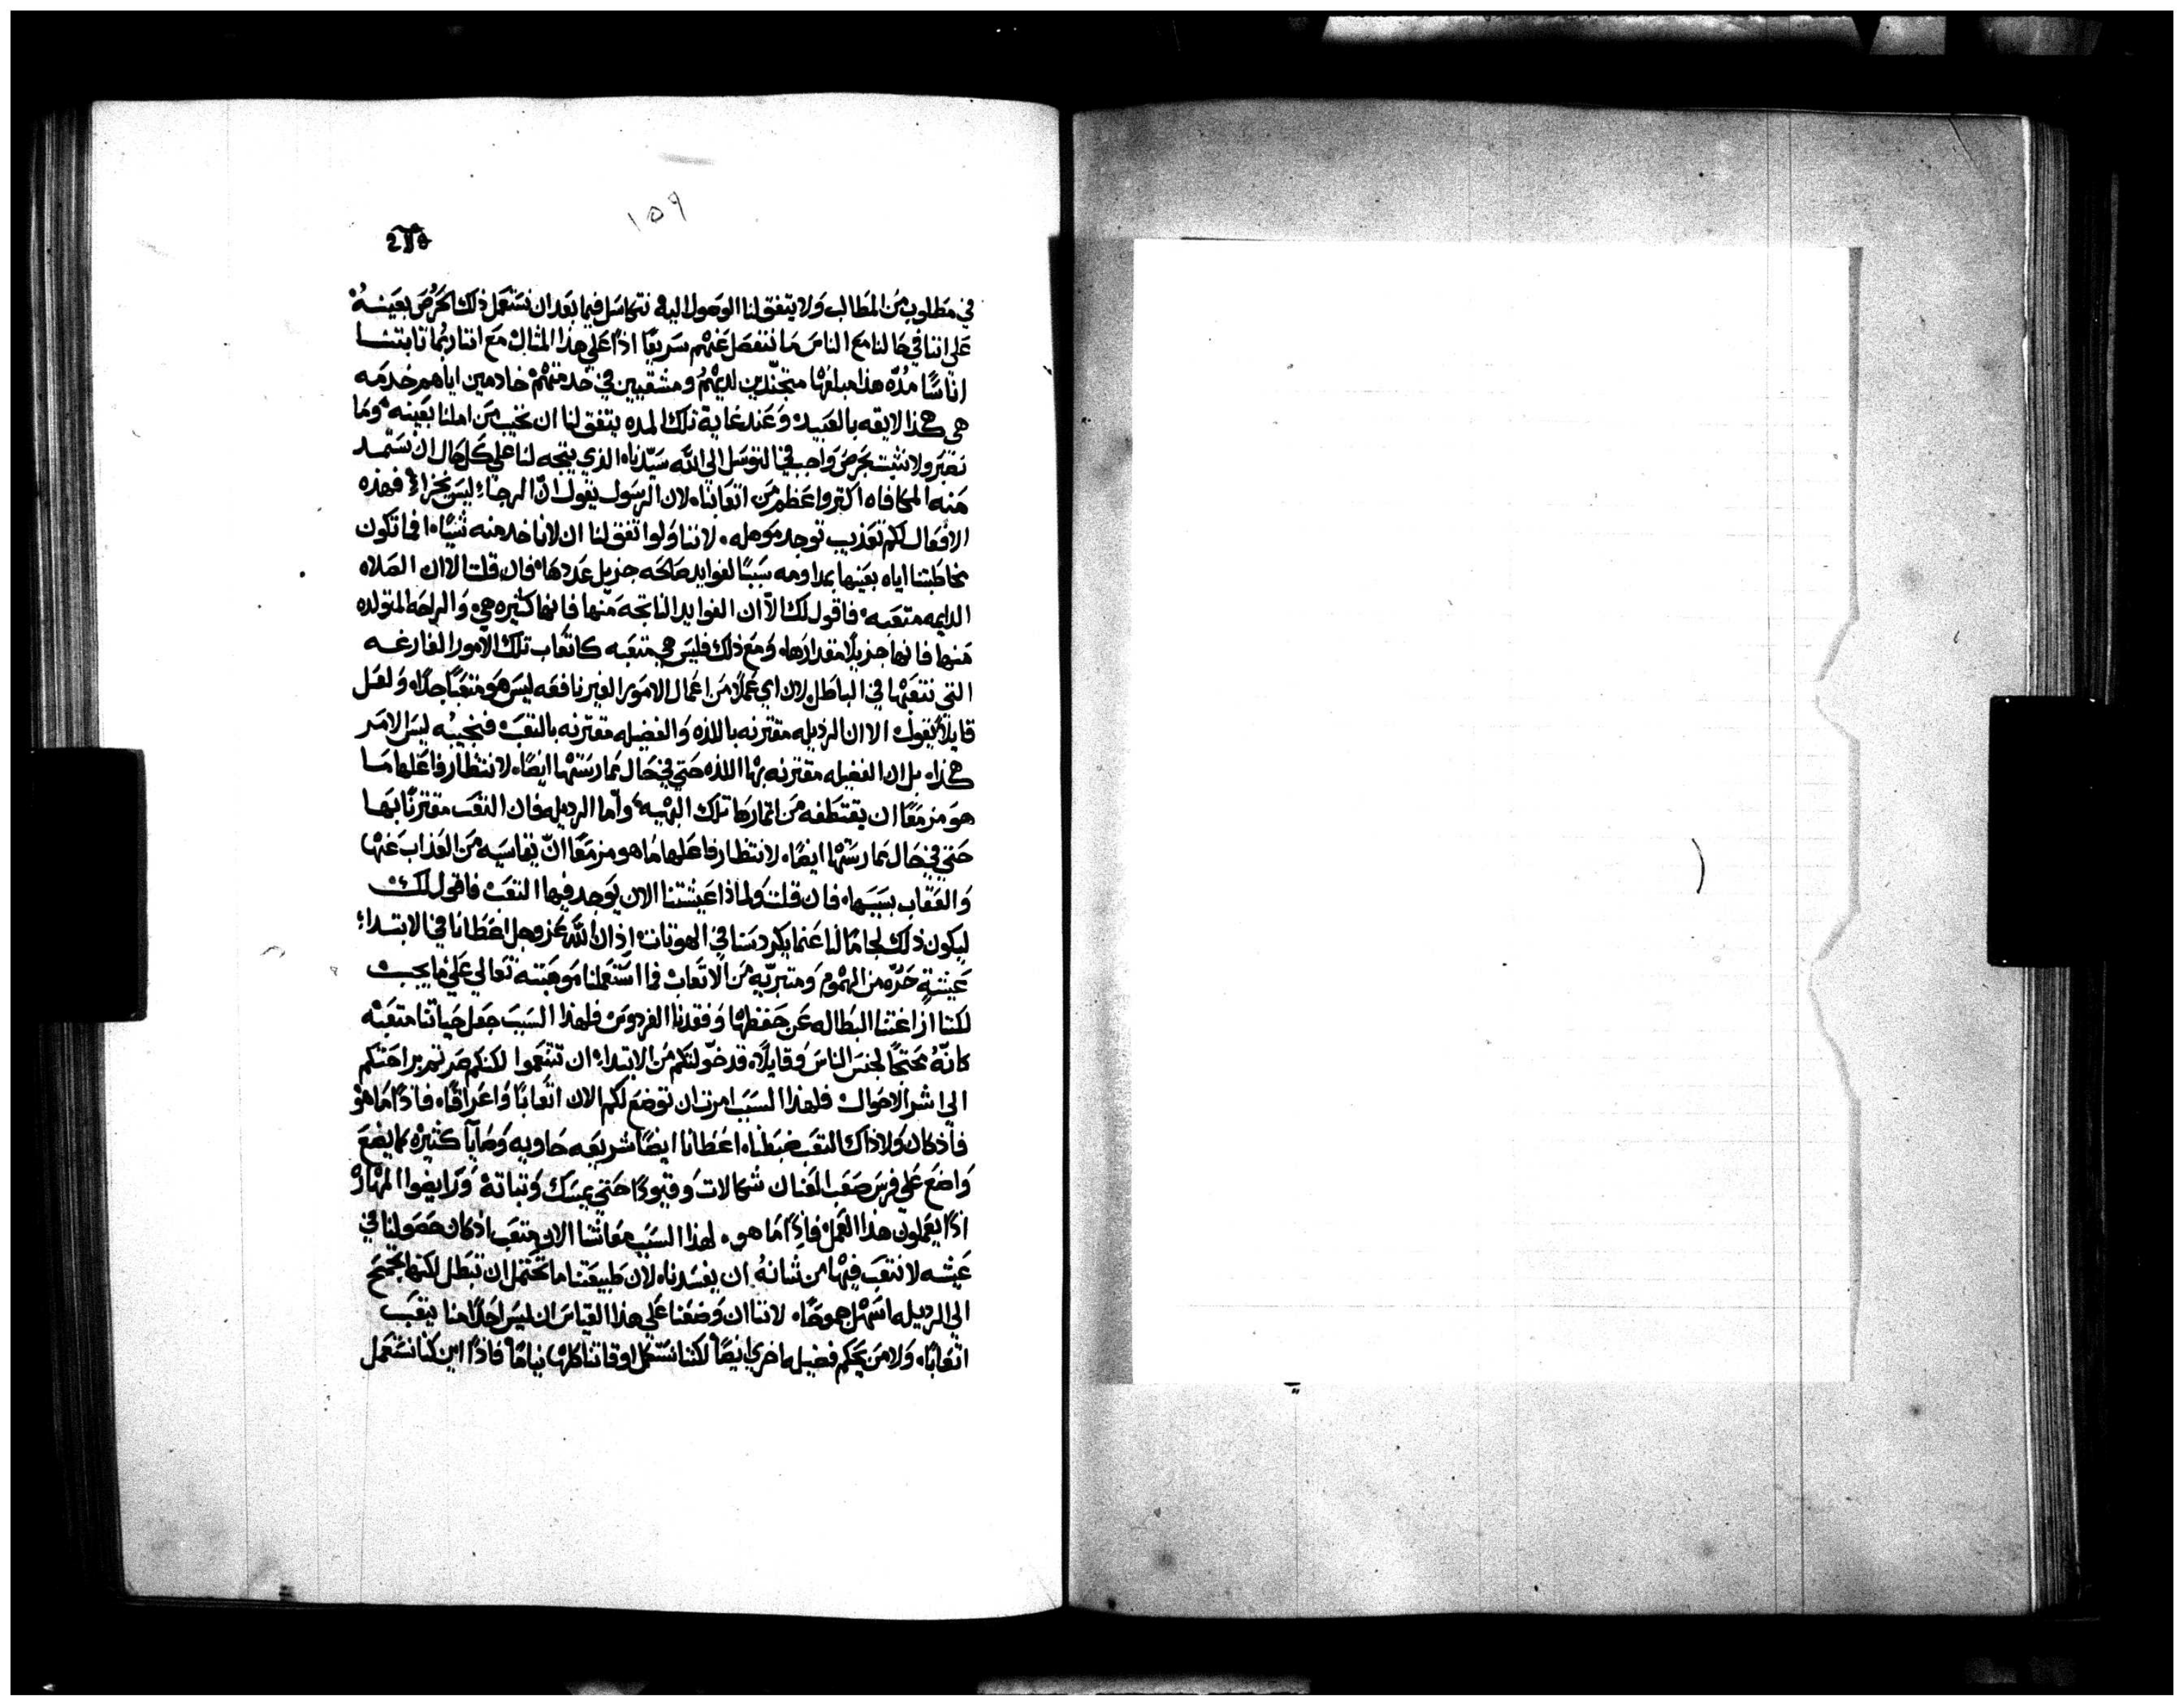 ١٥٩
في مطلوبٍ من المطالب ولا يتفق لنا الوصول اليه نتكاسل فيما بعد ان نستعمل ذلك الحرص بعينه
على اننا في حالنا مع الناس ما ننفصل عنهم سريعًا اذًا على هذا المثال مع اننا ربما نابتنا
اناسًا مدّه هذا مبلغها متجنّدين لديهم ومشقيين في خدمتهم خادمين اياهم خدمه
هي هكذا لايقه بالعبيد وعند غاية تلك المده يتفق لنا ان نخيب من املنا بعينه وما
نصبر ولا نثبت بحرص واجب في التوسل الى الله سيّدناه الذي يتجه لنا علي كل حال ان نستمد
منه المكافاه اكتر واعظم من اتعابناه لان الرسول يقول انّ الرجاء ليس يخزا فهذه
الافعال لكم تعذيب توجد موهله لاننا ولو اتفق لنا ان لا ناخد منه شيًا افما تكون
مخاطبتنا اياه بعينها بمداومه سببًا لفوايد صالحه جزيل عددها فان قلت الا ان الصلاه
الدايمه متعبه فاقول لك الا ان الفوايد الناتجه منها فانها كثيره هي والراحه المتولده
منها فانها جزيلًا مقدارها ومع ذلك فليس هي متعبه كاتعاب تلك الامور الفارغه
التي نتعبها في الباطل لان اي عملًا من اعمال الامور الغير نافعه ليس هو متعبًا جدًا ولعل
قايلًا يقول الا ان الرذيله مقترنه باللذه والفضيله مقترنه بالتعب فنجيبه ليس الامر
هكذا بل ان الفضيله مقترنه بها اللذه حتى في حال ممارستها ايضًا لانتظار فاعلها ما
هو مزمعًا ان يقتطفه من اثمارها تلك البهيه وأما الرديله فان التعب مقترنًا بها
حتى في حال ممارستها ايضًا لانتظار فاعلها ما هو مزمعًا انّ يقاسيه من العذاب عنها
والعقاب بسببها فان قلت ولماذا عيشتنا الان يوجد فيها التعب فاقول لك
ليكون ذلك لجامًا لنا عنما يكردسنا في الهوتات اذ ان الله عز وجل اعطانا في الابتداء
عيشةٍ حرّه من الهموم ومتبريّه من الاتعاب فما استعملنا موهبته تعالي علي ما يجب
لكننا ازاغتنا البطاله عن حفظها وفقدنا الفردوس فلهذا السبب جعل حياتنا متعبه
كانّهُ محتجًا لجنس الناس وقايلًا قد خوّلتكم من الابتداء ان تتنعموا لكنكم صرتم براحتكم
الى اشر الاحوال فلهذا السبب امرت ان توضع لكم الان اتعابًا واعراقًا فاذًا ما هو
فأذ كان ولا ذاك التعب ضبطناه اعطانا ايضًا شريعه حاويه وصايا كثيرة كما يضع
واضع علي فرس صعب العنان شكالات وقيودًا حتى يمسك وتباتهُ ورايضوا المهار
اذًا يعملون هذا العمل فاذًا ما هو لهذا السبب معاشنا الان متعب اذ كان حصولنا في
عيشه لا نتعب فيها من شانهُ ان يفسدناه لان طبيعتنا ما تحتمل ان تبطل لكنها تجمح
الى الرديله اسهل جموحًا لاننا ان وضعنا علي هذا القياس ان ليس احدًا منا يتعب
اتعابًا ولا من يحكم فضيله اخري ايضًا لكننا نستعمل اوقاتنا كلها نيامًا فاذًا اين كنا نستعمل